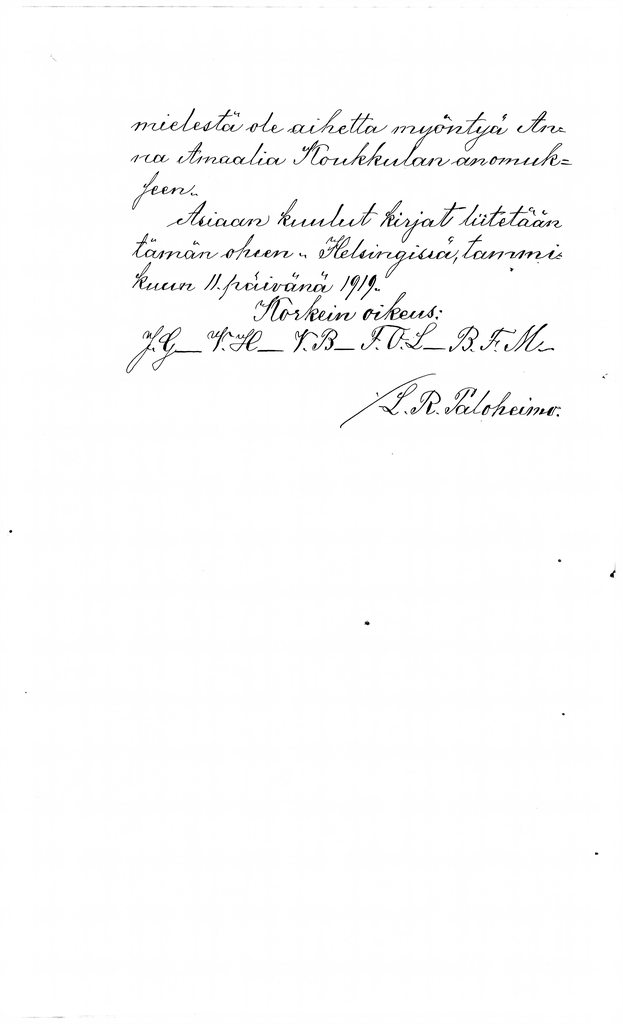 mielestä ole aihetta myöntyä An=
na Amaalia Koukkulan anomuk=
seen.
Asiaan kuulut kirjat liitetään
tämän oheen. Helsingissä, tammi=
kuun 11. päivänä 1919.
Korkein oikeus:
J. G_ W. H_ V. B_ F. O. L_ B. F. M_
/ L. R. Paloheimo.